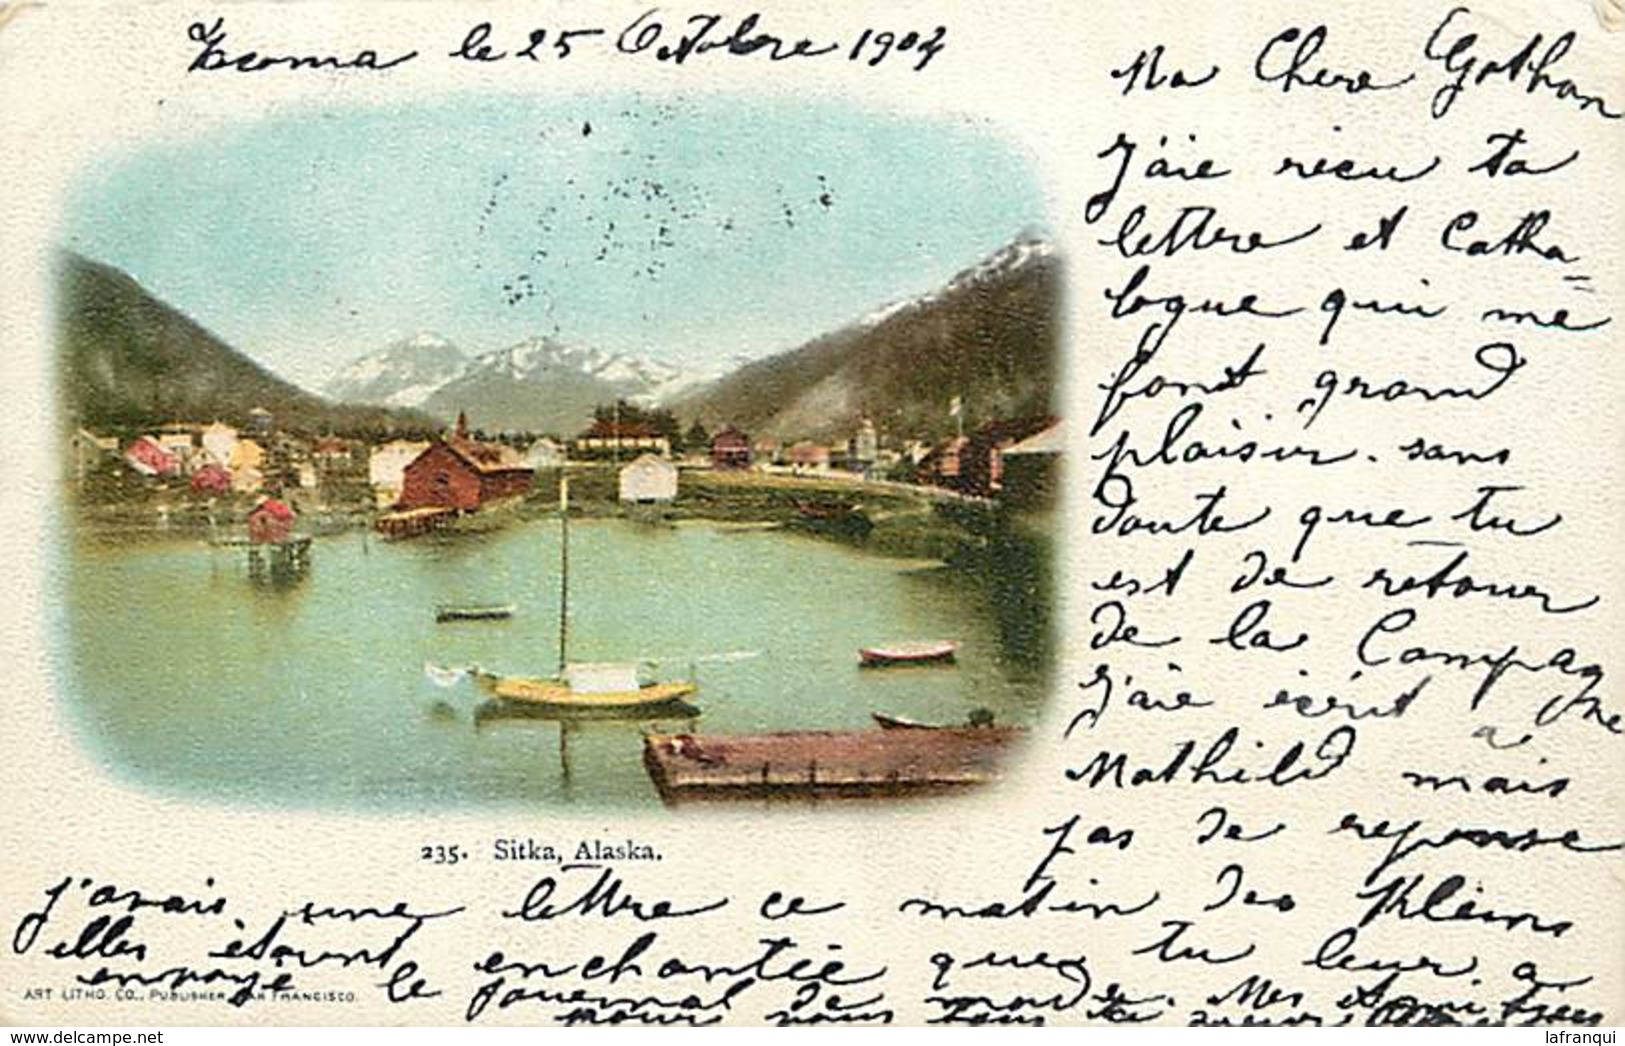 le 25 Octobre 1904
Ma Chere
J'aie récu ta
lettre et Catha=
logue qui me
font grand
plaisir. sans
doute que tu
est de retour
de la Compagne
J'aie écrit à
Mathild mais
pas de reponse
235. Sitka, Alaska.
j'avais une lettre ce matin des Kleins
elles étaint enchantée que tu leur a
envoyé le journal de mode. Mes
ART LITHO. CO., PUBLISHER, SAN FRANCISCO.
pour vous tous ta soeur
delcampe.net
lafranqui